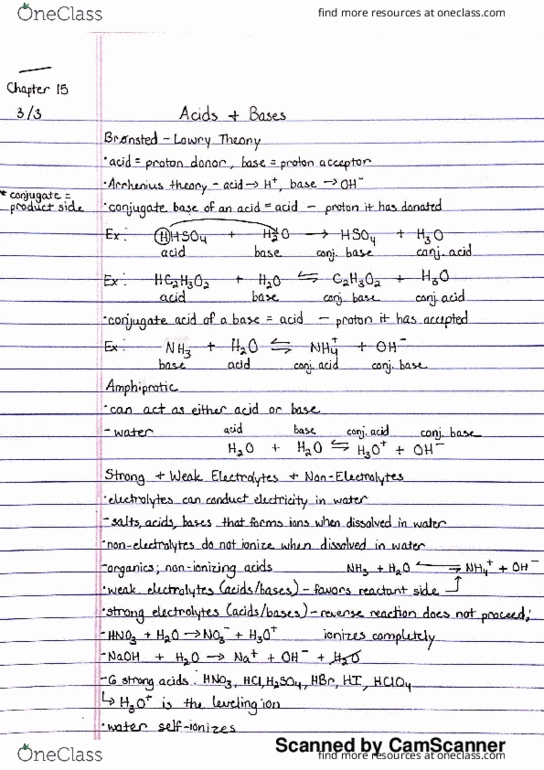 OneClass
find more resources at oneclass.com
Chapter 15
3/3
Acids + Bases
Bronsted - Lowry Theory
·acid = proton donor, base = proton acceptor
·Arrhenius theory - acid → H⁺, base → OH⁻
* conjugate = product side
·conjugate base of an acid = acid - proton it has donated
Ex: HHSO₄ + H₂O → HSO₄ + H₃O
acid base conj. base conj. acid
Ex: HC₂H₃O₂ + H₂O ⇆ C₂H₃O₂ + H₃O
acid base conj. base conj. acid
·conjugate acid of a base = acid - proton it has accepted
Ex: NH₃ + H₂O ⇆ NH₄⁺ + OH⁻
base acid conj. acid conj. base
Amphiprotic
·can act as either acid or base
-water acid base conj. acid conj. base
H₂O + H₂O ⇆ H₃O⁺ + OH⁻
Strong + Weak Electrolytes + Non-Electrolytes
·electrolytes can conduct electricity in water
-salts, acids, bases that forms ions when dissolved in water
·non-electrolytes do not ionize when dissolved in water
-organics; non-ionizing acids NH₃ + H₂O ⇆ NH₄⁺ + OH⁻
·weak electrolytes (acids/bases) - favors reactant side
·strong electrolytes (acids/bases) - reverse reaction does not proceed;
-HNO₃ + H₂O → NO₃⁻ + H₃O⁺ ionizes completely
-NaOH + H₂O → Na⁺ + OH⁻ + H₂O
-6 strong acids: HNO₃, HCl, H₂SO₄, HBr, HI, HClO₄
↳ H₃O⁺ is the leveling ion
·water self-ionizes
Scanned by CamScanner
OneClass
find more resources at oneclass.com